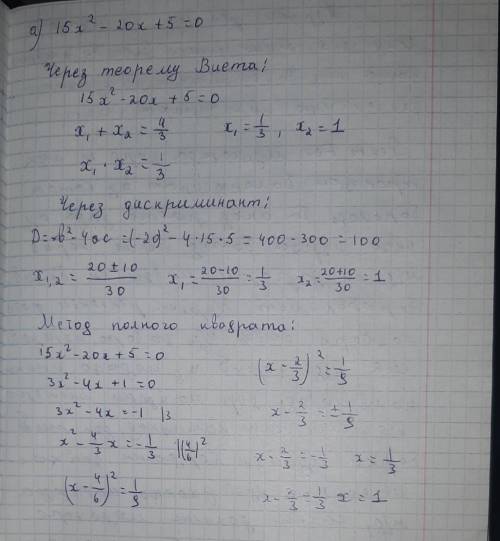 а) 15x² - 20x + 5 = 0
Через теорему Виета:
15x² - 20x + 5 = 0
x₁ + x₂ = 4/3    x₁ = 1/3, x₂ = 1
x₁ · x₂ = 1/3
Через дискриминант:
D = b² - 4ac = (-20)² - 4·15·5 = 400 - 300 = 100
x₁,₂ = (20 ± 10)/30    x₁ = (20-10)/30 = 1/3    x₂ = (20+10)/30 = 1
Метод полного квадрата:
15x² - 20x + 5 = 0
3x² - 4x + 1 = 0
3x² - 4x = -1 |3
x² - 4/3 x = -1/3 |(4/6)²
(x - 4/6)² = 1/9
(x - 2/3)² = 1/9
x - 2/3 = ± 1/9
x - 2/3 = -1/3    x = 1/3
x - 2/3 = 1/3    x = 1